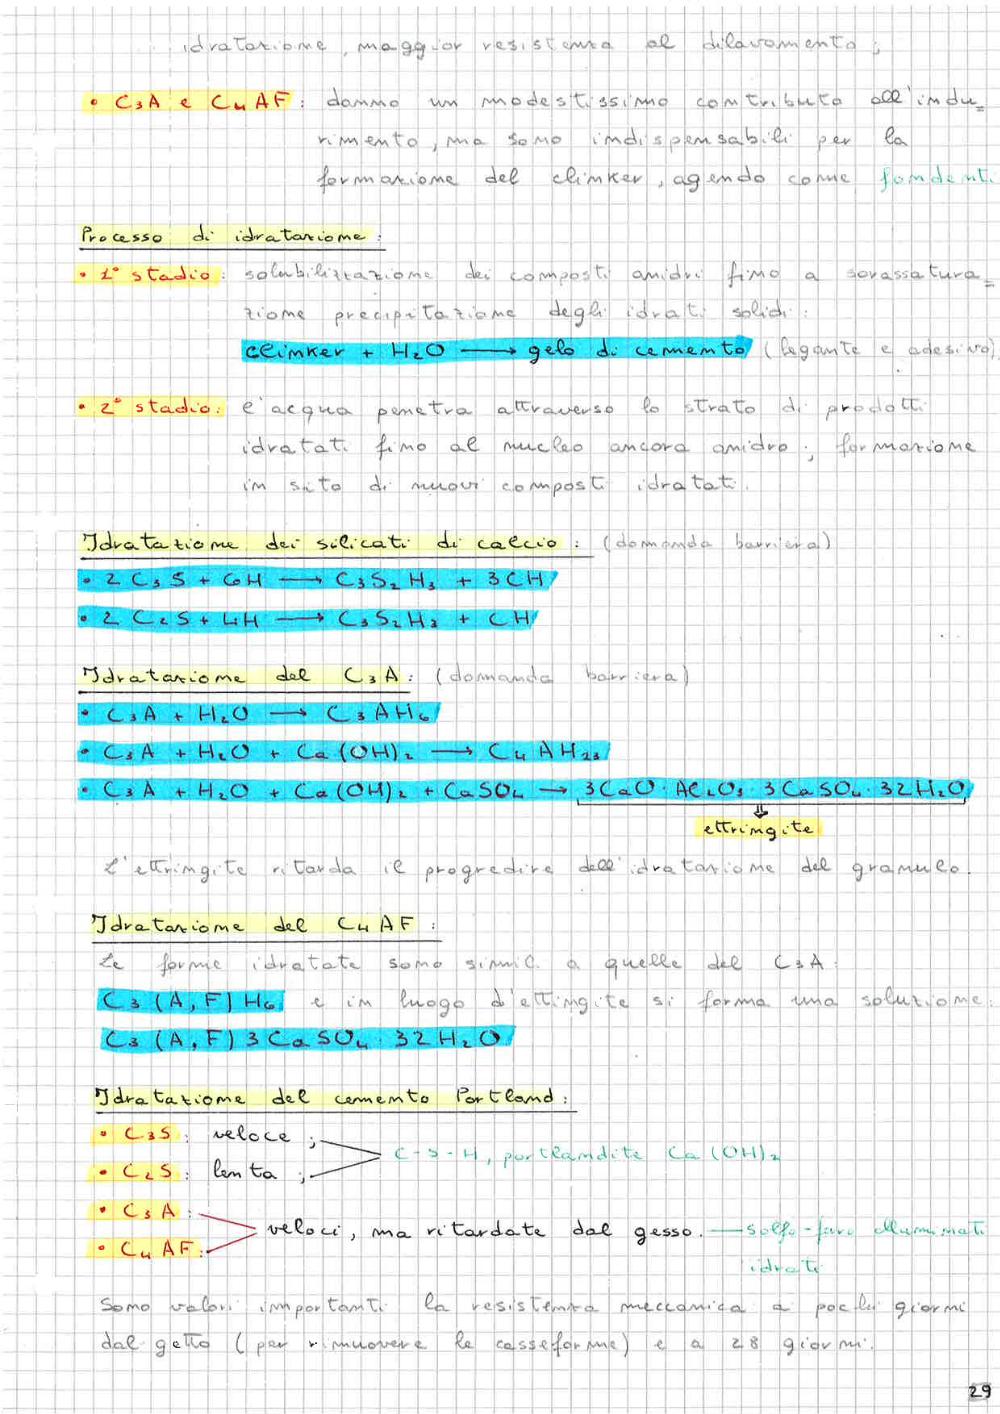 idratazione, maggior resistenza al dilavamento;
• C₃A e C₄AF: danno un modestissimo contributo all'indu=
rimento, ma sono indispensabili per la
formazione del clinker, agendo come fondenti.
Processo di idratazione:
• 1° stadio: solubilizzazione dei composti anidri fino a sovassatura=
zione precipitazione degli idrati solidi:
clinker + H₂O → gelo di cemento (legante e adesivo)
• 2° stadio: l'acqua penetra attraverso lo strato di prodotti
idratati fino al nucleo ancora anidro; formazione
in sito di nuovi composti idratati.
Idratazione dei silicati di calcio: (domanda barriera)
• 2 C₃S + 6H → C₃S₂H₃ + 3CH
• 2 C₂S + 4H → C₃S₂H₃ + CH
Idratazione del C₃A: (domanda barriera)
• C₃A + H₂O → C₃AH₆
• C₃A + H₂O + Ca(OH)₂ → C₄AH₂₃
• C₃A + H₂O + Ca(OH)₂ + CaSO₄ → 3CaO·Al₂O₃·3CaSO₄·32H₂O
ettringite
L'ettringite ritarda il progredire dell'idratazione del granulo.
Idratazione del C₄AF:
Le forme idratate sono simil. a quelle del C₃A:
C₃(A,F)H₆ e in luogo d'ettingite si forma una soluzione:
C₃(A,F)3CaSO₄·32H₂O
Idratazione del cemento Portland:
• C₃S: veloce;
C-S-H, portlandite Ca(OH)₂
• C₂S: lenta;
• C₃A:
veloci, ma ritardate dal gesso. — solfo-ferro alluminati
• C₄AF:
idrati
Sono valori importanti la resistenza meccanica a pochi giorni
dal getto (per rimuovere le casseforme) e a 28 giorni.
29